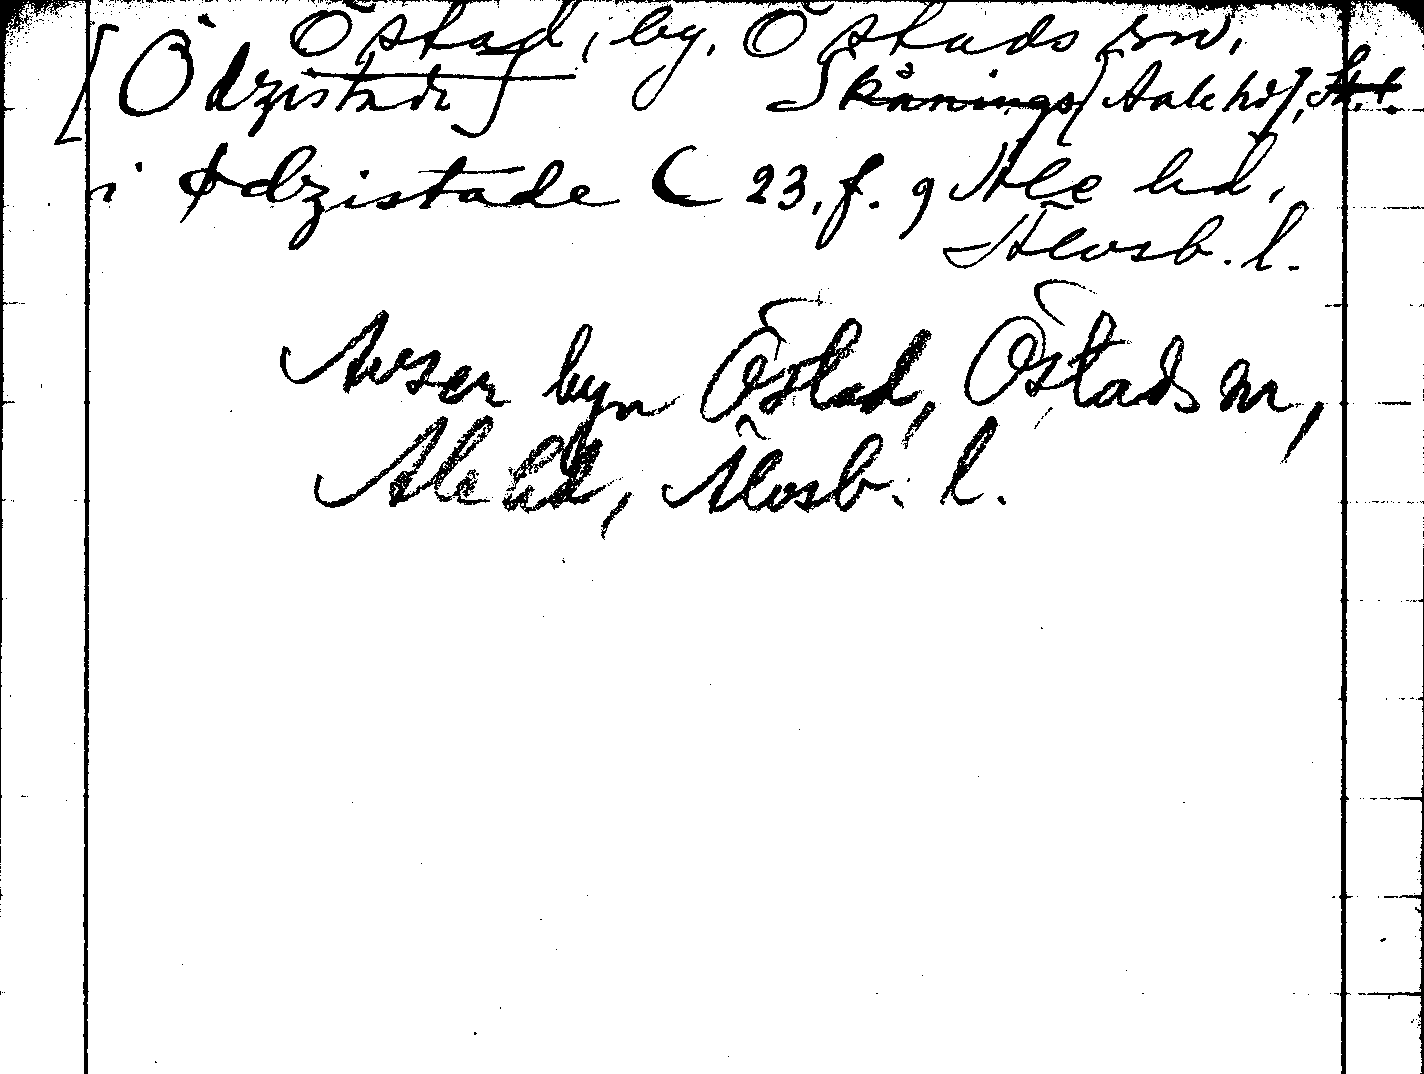 Östad, by. Östads sn,
[Ödzistadi] Skånings [Aale hd], Sk.l.
i ødzistade C 23, f. 9 Ale hd,
Älvsb. l.
Avser byn Östad, Östads sn,
Ale hd, Älvsb. l.